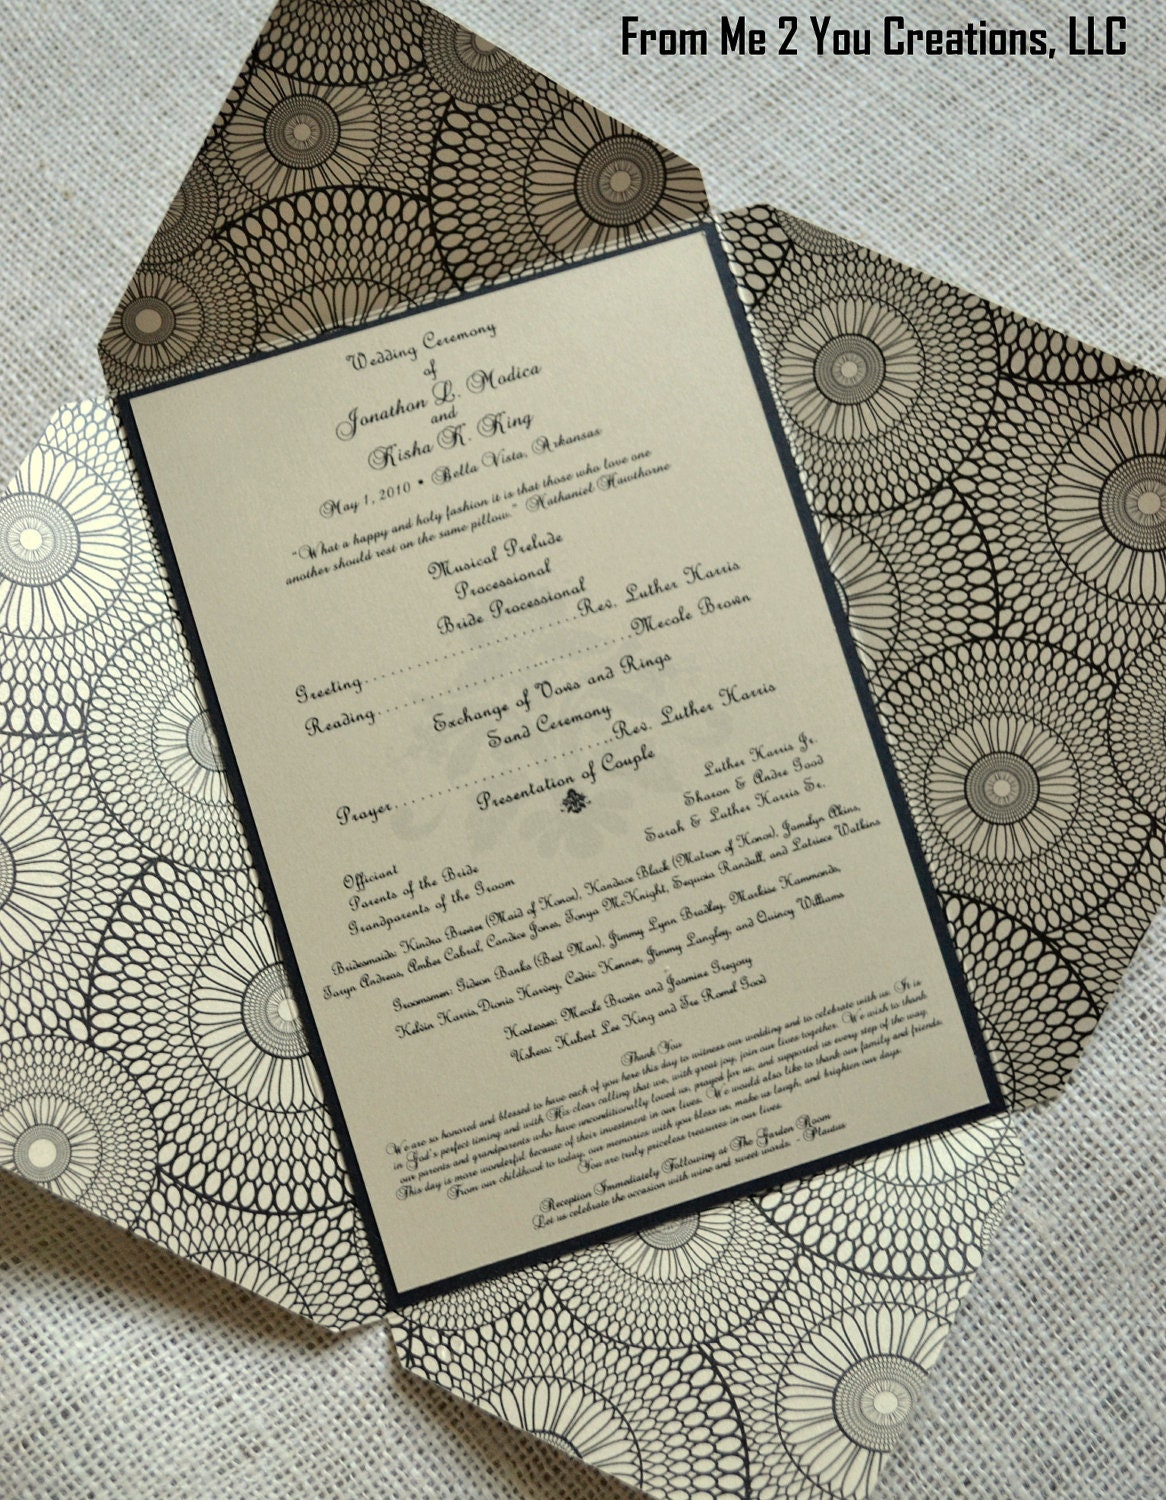 From Me 2 You Creations, LLC
Wedding Ceremony
of
Jonathon L. Modica
and
Kisha K. King
May 1, 2010 • Bella Vista, Arkansas
"What a happy and holy fashion it is that those who love one
another should rest on the same pillow." Nathaniel Hawthorne
Musical Prelude
Processional
Bride Processional
Greeting..........................Rev. Luther Harris
Reading..............................Mecole Brown
Exchange of Vows and Rings
Sand Ceremony
Prayer..........................Rev. Luther Harris
Presentation of Couple
Officiant Luther Harris Jr.
Parents of the Bride Sharon & Andre Good
Grandparents of the Groom Sarah & Luther Harris Sr.
Bridesmaids: Kindra Brewer (Maid of Honor), Kandace Black (Matron of Honor), Jamelyn Akins,
Taryn Andreas, Amber Cabral, Candice Jones, Tonya McKnight, Sequoia Randall, and Latriece Watkins
Groomsmen: Gideon Banks (Best Man), Jimmy Lynn Bradley, Markise Hammonds,
Kelvin Harris, Dionis Harvey, Cedric Kenner, Jimmy Langley, and Quincy Williams
Hostesses: Mecole Brown and Jasmine Gregory
Ushers: Hubert Lee King and Tre Romel Good
Thank You
We are so honored and blessed to have each of you here this day to witness our wedding and to celebrate with us. It is
in God's perfect timing and with His clear calling that we, with great joy, join our lives together. We wish to thank
our parents and grandparents who have unconditionally loved us, prayed for us, and supported us every step of the way.
This day is more wonderful because of their investment in our lives. We would also like to thank our family and friends.
From our childhood to today, our memories with you bless us, make us laugh, and brighten our days.
You are truly priceless treasures in our lives.
Reception Immediately Following at The Garden Room
Let us celebrate the occasion with wine and sweet words. - Plautus